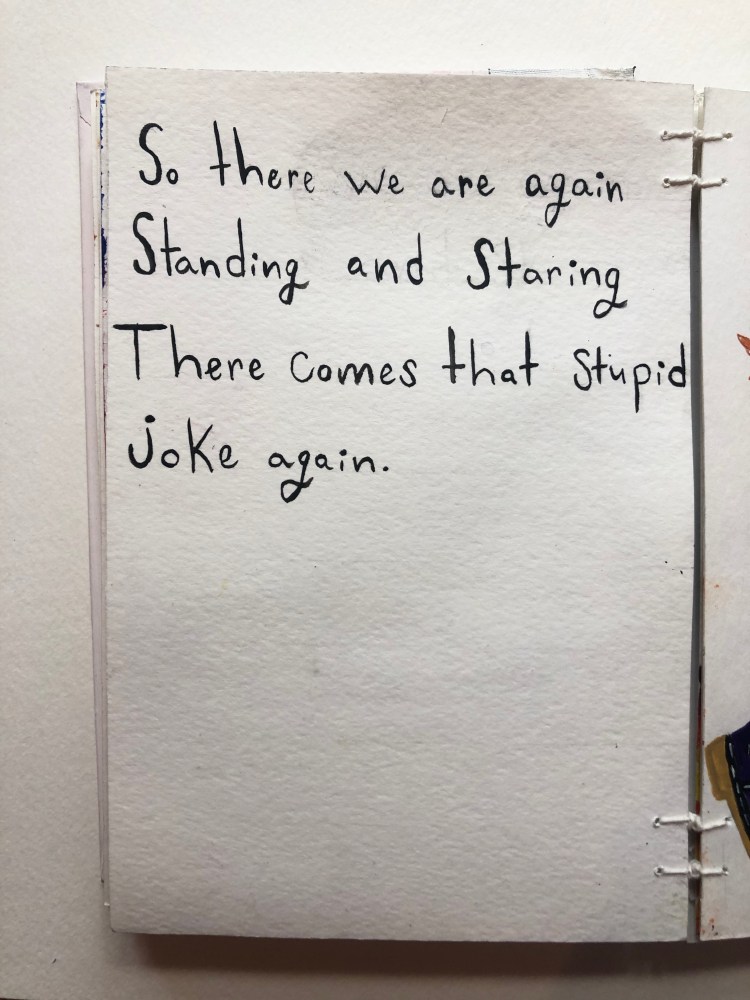 So there we are again
Standing and Staring
There comes that stupid
joke again.